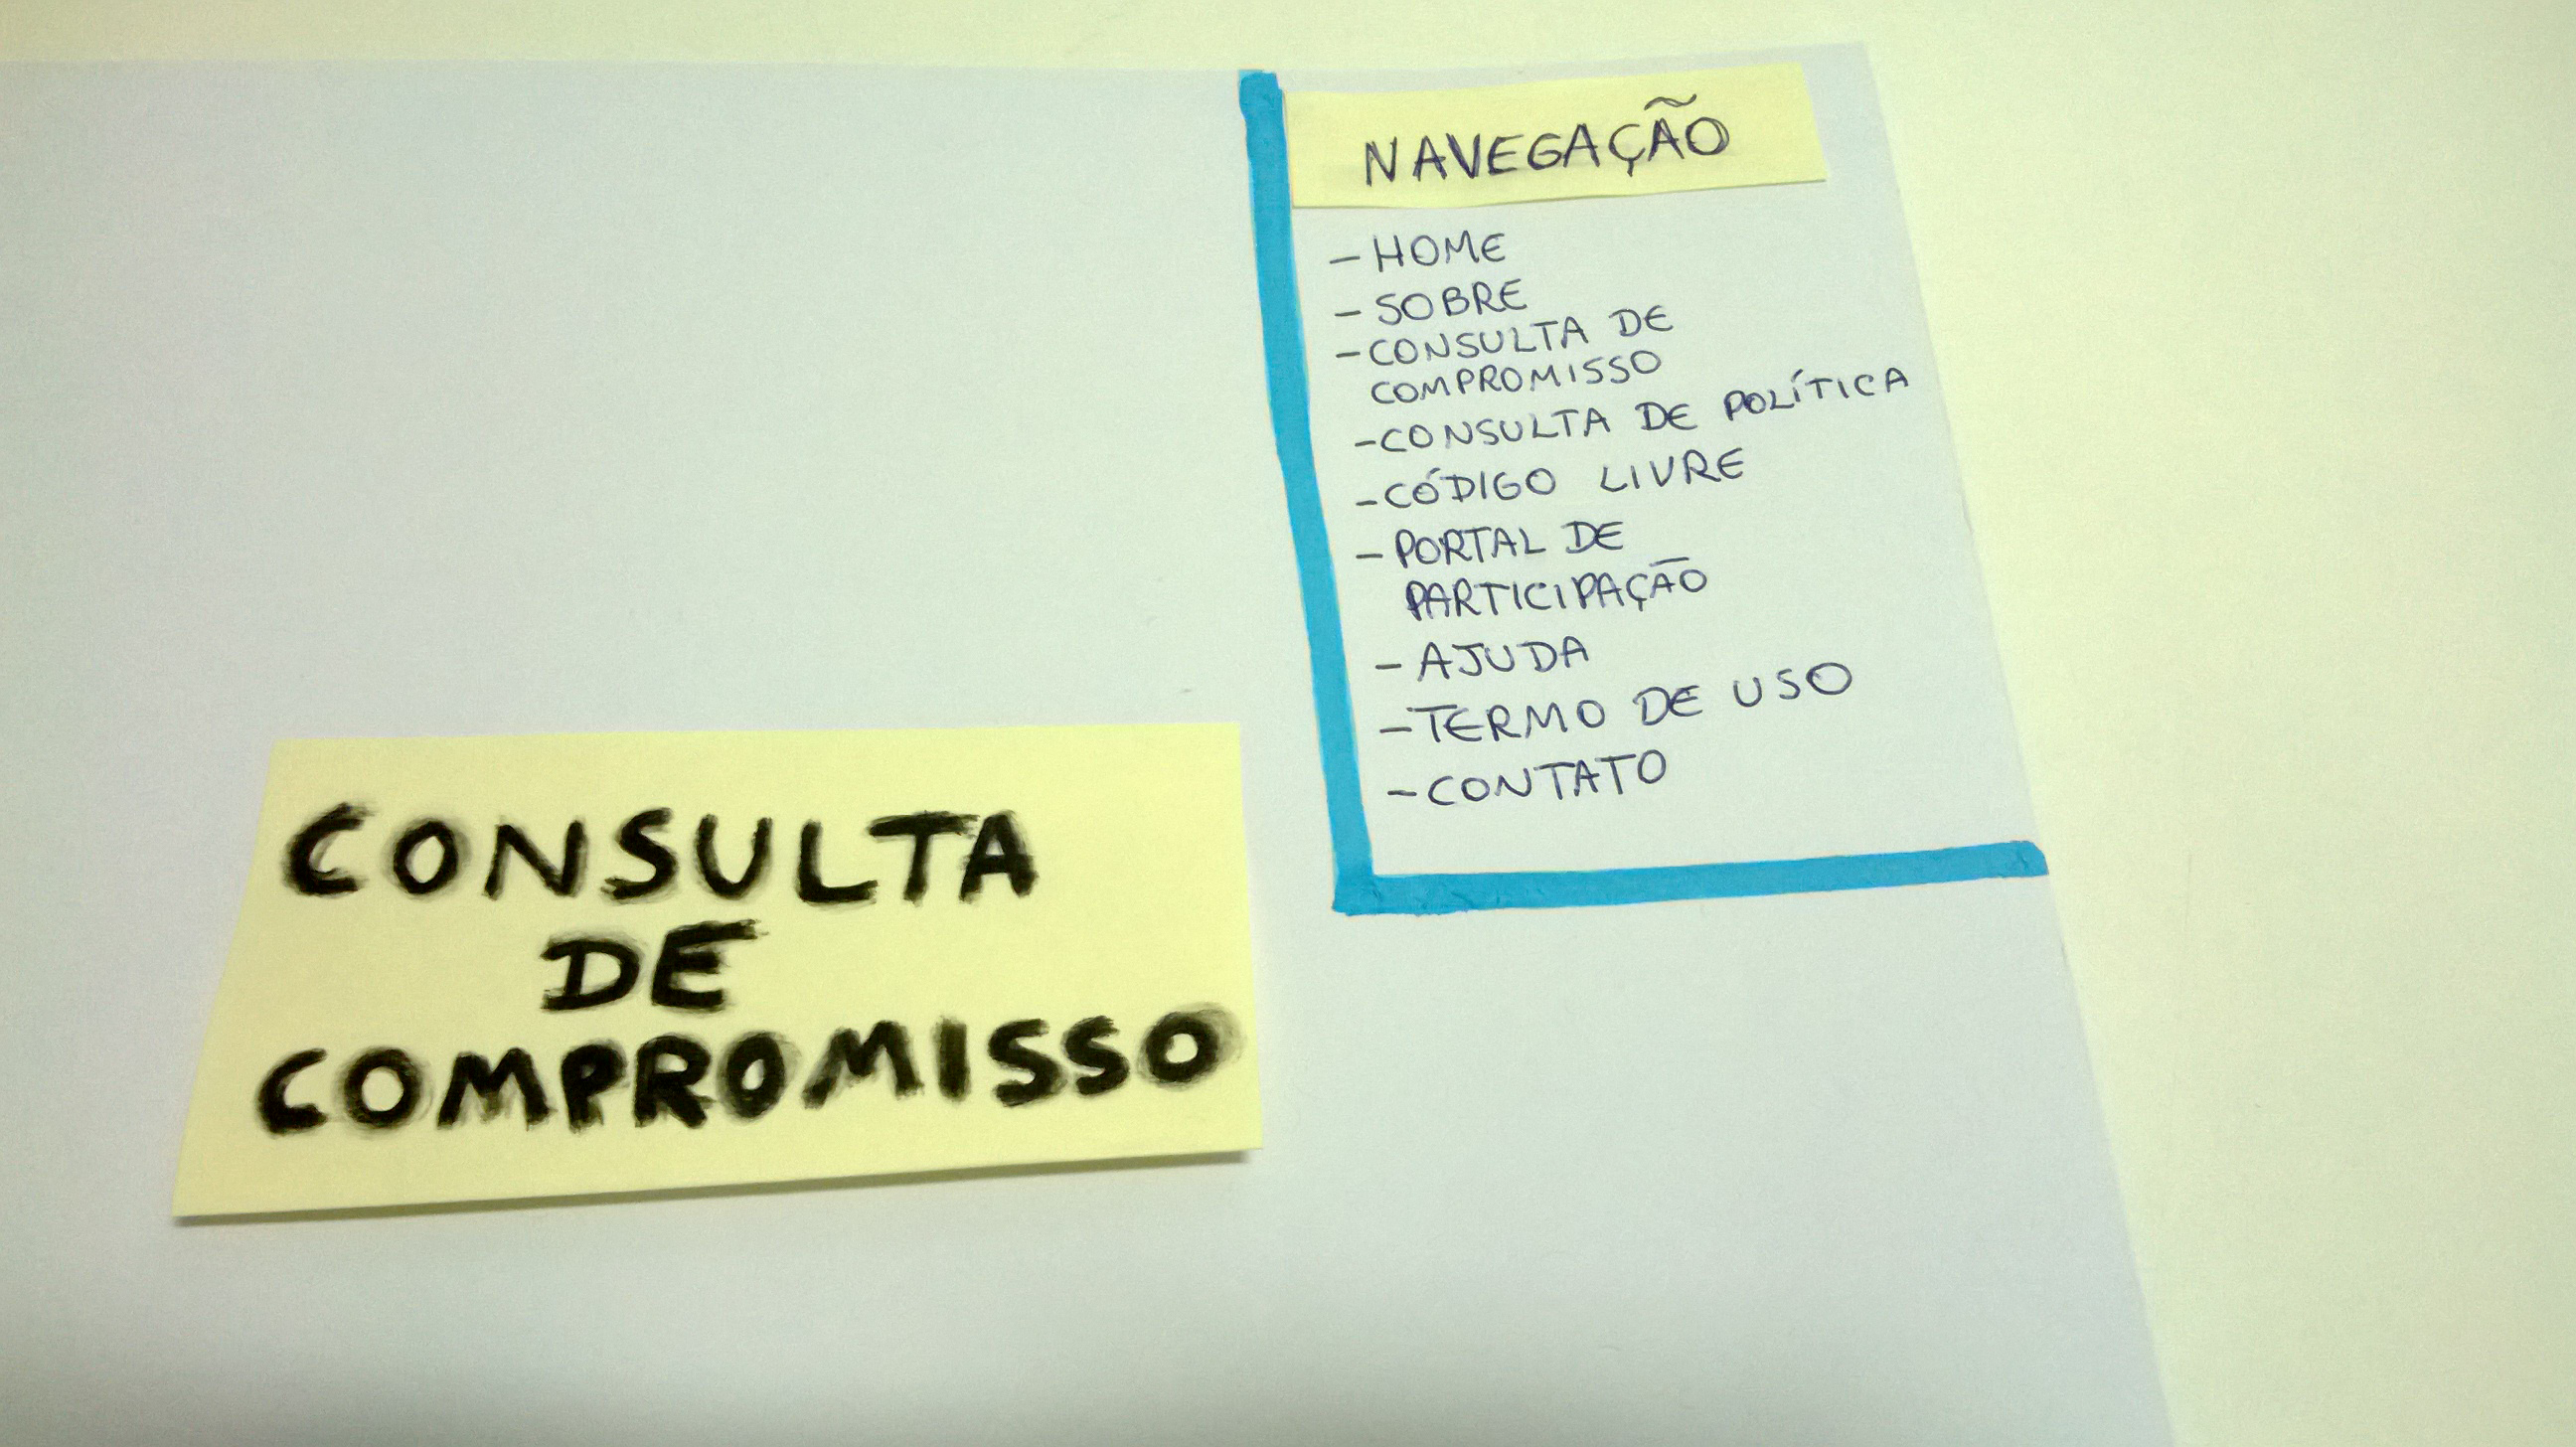 NAVEGAÇÃO
- HOME
- SOBRE
- CONSULTA DE
COMPROMISSO
- CONSULTA DE POLÍTICA
- CÓDIGO LIVRE
- PORTAL DE
PARTICIPAÇÃO
- AJUDA
- TERMO DE USO
- CONTATO
CONSULTA
DE
COMPROMISSO